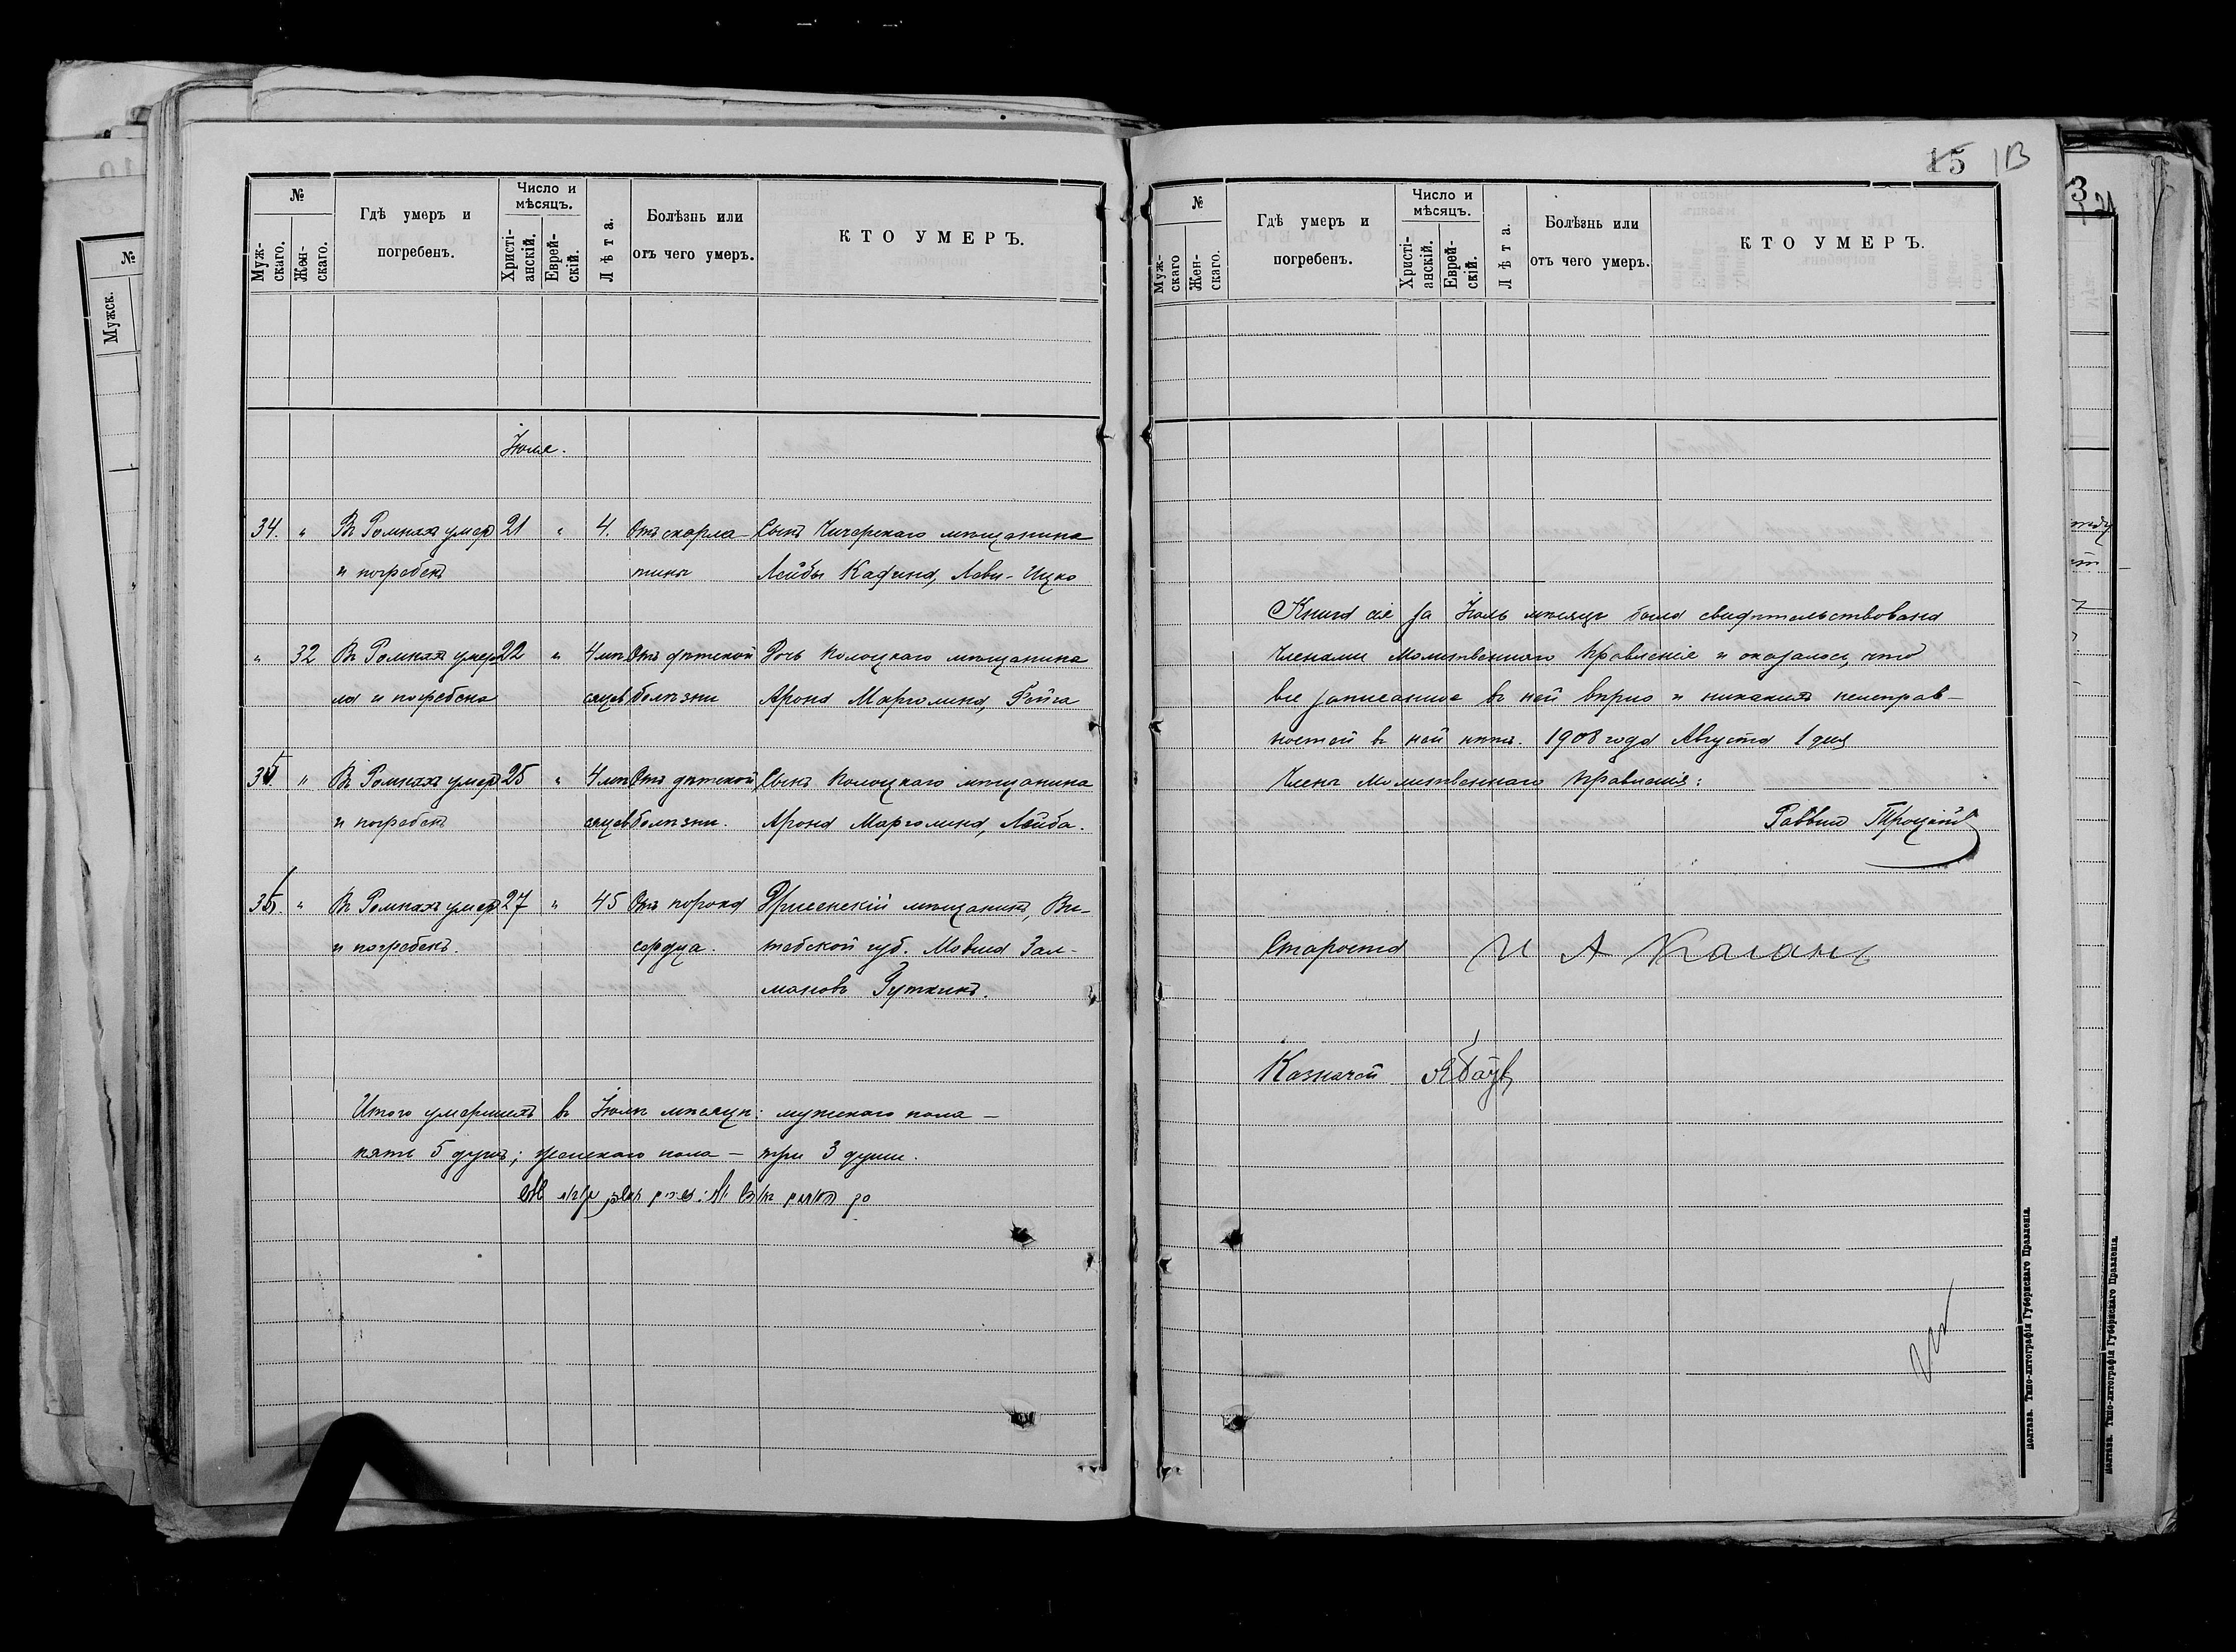 №
Муж-
скаго.
Жен-
скаго.
Гдѣ умеръ и
погребенъ.
Число и
мѣсяцъ.
Христі-
анскій.
Еврей-
скій.
Лѣта.
Болѣзнь или
отъ чего умеръ.
КТО УМЕРЪ.
Іюля.
34. „ Въ Ромнахъ умеръ 21 „ 4. Отъ скарла- Сынъ Чичерскаго мѣщанина
и погребенъ тины Лейбы Кагана, Леви-Ицко
„ 32 Въ Ромнахъ умер- 22 „ 4 мѣ- Отъ дѣтской Дочь Полоцкаго мѣщанина
ла и погребена сяцевъ болѣзни Арона Марголина, Рейза
35 „ Въ Ромнахъ умеръ 25 „ 4 мѣ- Отъ дѣтской Сынъ Полоцкаго мѣщанина
и погребенъ сяцевъ болѣзни. Арона Марголина, Лейба.
36. „ Въ Ромнахъ умеръ 27 „ 45 Отъ порока Дрисенскій мѣщанинъ, Ви-
и погребенъ. сердца. тебской губ. Мовша Зал-
мановъ Гуткинъ.
Итого умершихъ въ Іюлѣ мѣсяцѣ: мужского пола —
пять 5 душъ; женского пола — три 3 души.
15 13
№
Муж-
скаго
Жен-
скаго.
Гдѣ умеръ и
погребенъ.
Число и
мѣсяцъ.
Христі-
анскій.
Еврей-
скій.
Лѣта.
Болѣзнь или
отъ чего умеръ.
КТО УМЕРЪ.
Книга сія за Іюль мѣсяцъ была свидѣтельствована
Членами Молитвеннаго Правленія и оказалось, что
все записанное въ ней вѣрно и никакихъ неисправ-
ностей въ ней нѣтъ. 1908 года Августа 1 дня
Члены Молитвеннаго Правленія:
Раввинъ Троцкій
Староста И А Каганъ
Казначей
Полтава. Типо-литографія Губернскаго Правленія.
№
Мужск.
3
Полтава. Типо-литографія Губернскаго Правленія.